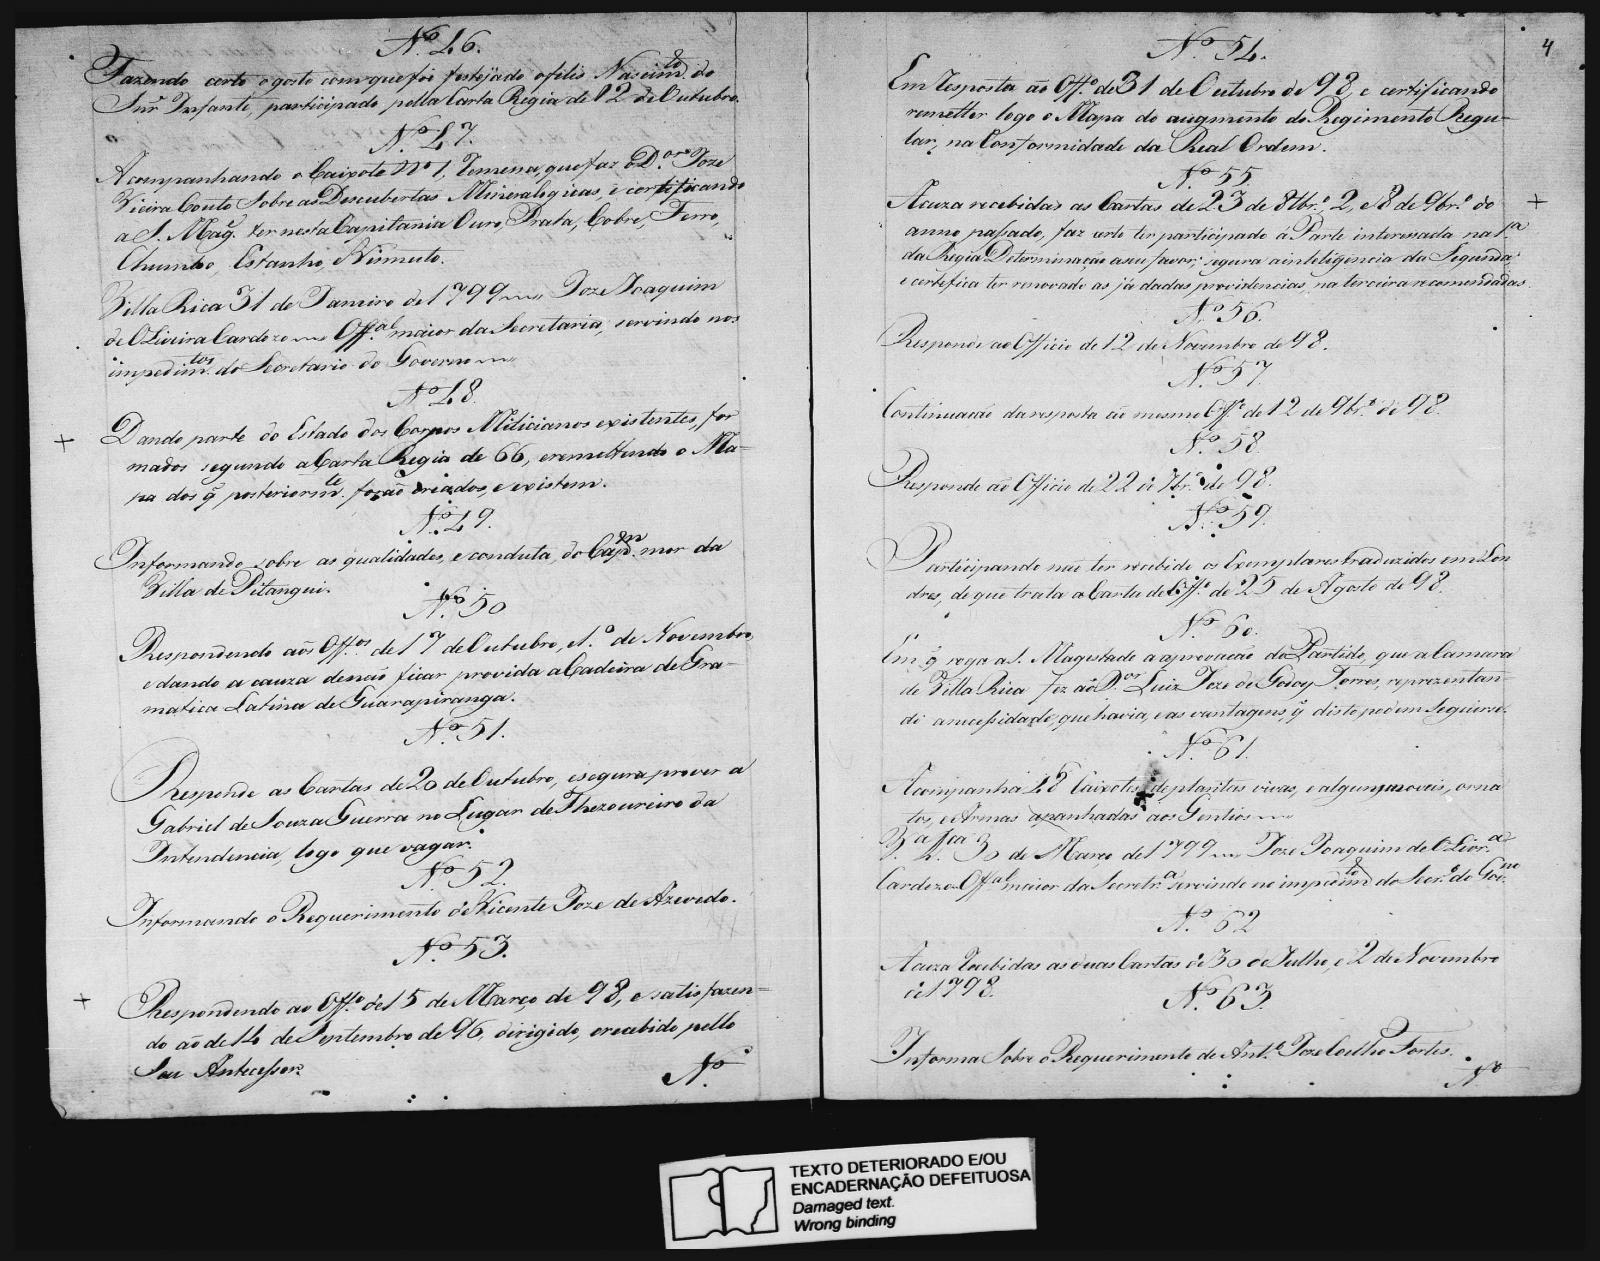 Nº 46.
Fazendo certo o gosto com que foi festejado o feliz Nascim.to do
Snr. Infante, participado pella Carta Regia de 12 de Outubro.
Nº 47.
Acompanhando o Caixote Nº 1, Remessa, que faz o D.or Joze
Vieira Couto Sobre as Descubertas Mineralogicas, e certificando
a S. Mag.e ter nesta Capitania Ouro, Prata, Cobre, Ferro,
Chumbo, Estanho, Bismuto.
Villa Rica 31 de Janeiro de 1799 Joze Joaquim
de Oliveira Cardozo Off.al maior da Secretaria, servindo nos
impedim.tos do Secretario do Governo
Nº 48.
Dando parte do Estado dos Corpos Milicianos existentes, for
mados segundo a Carta Regia de 66, e remettendo o Ma-
pa dos q̃ posteriorm.te forão criados, e existem.
Nº 49.
Informando sobre as qualidades, e conduta, do Cap.am mor da
Villa de Pitangui.
Nº 50
Respondendo aos Off.os de 17 de Outubro, e 1.º de Novembro,
e dando a cauza de não ficar provida a Cadeira de Gra-
matica Latina de Guarapiranga.
Nº 51.
Responde as Cartas de 20 de Outubro, e segura prover a
Gabriel de Souza Guerra no Lugar de Thezoureiro da
Intendencia, logo que vagar.
Nº 52.
Informando o Requerimento de Vicente Joze de Azevedo.
Nº 53.
Respondendo ao Off.º de 15 de Março de 98, e satisfazen-
do ao de 14 de Septembro de 96, dirigido, e recebido pello
Seu Antecessor.
Nº
4
Nº 54.
Em resposta ao Off.º de 31 de Outubro de 98, e certificando
remetter logo o Mapa do augmento do Regimento Regu-
lar, na Conformidade da Real Ordem.
Nº 55.
Acuza recebidas as Cartas de 23 de 8br.º 2, e 8 de 9br.º do
anno passado, faz certo ter participado á Parte interessada na 1.a
da Regia Determinação a seu favor; segura a inteligencia da Segunda;
e certifica ter renovado as já dadas providencias, na terceira recomendadas.
Nº 56.
Responde ao Officio de 12 de Novembro de 98.
Nº 57
Continuação da resposta ao mesmo Off.º de 12 de 9br.º de 98.
Nº 58
Responde ao Officio de 22 de 7br.º de 98.
Nº 59.
Participando não ter recebido os Exemplares traduzidos em Lon
dres, de que trata a Carta de Off.º de 25 de Agosto de 98.
Nº 60.
Em q̃ roga a S. Magestade a aprovação do Partido, que a Camara
de Villa Rica fez ao D.or Luiz Joze de Godoy Torres, reprezentan-
do a necessidade, que havia, e as vantagens, q̃ disto podem Seguirse.
Nº 61.
Acompanha 28 Caixotes de plantas vivas, e alguns moveis, orna
tos, e Armas apanhadas aos Gentios
V.a R.ca 30 de Março de 1799 Joze Joaquim de Oliv.ra
Cardozo Off.al maior da Secretr.a servindo no impedim.to do Secr.º do Gov.no
Nº 62
Acuza Recebidas as duas Cartas de 30 de Julho, e 2 de Novembro
de 1798.
Nº 63.
Informa Sobre o Requerimento de Ant.º Joze Coelho Fortes.
Nº
TEXTO DETERIORADO E/OU
ENCADERNAÇÃO DEFEITUOSA
Damaged text.
Wrong binding